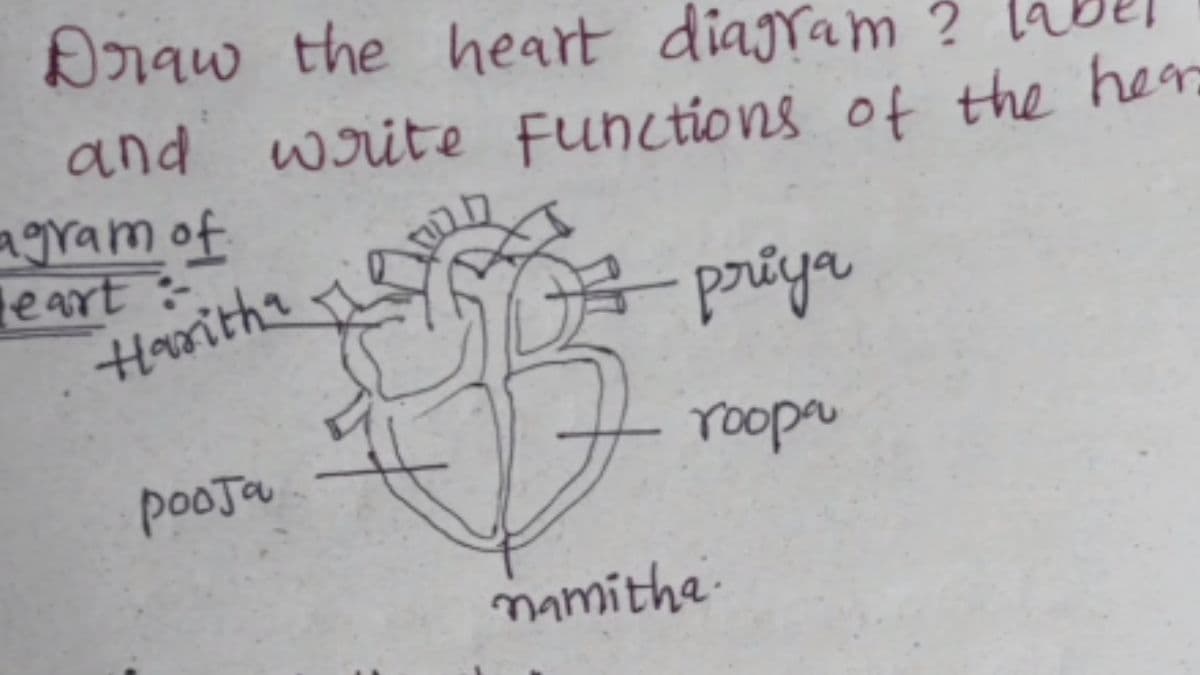 Draw the heart diagram ? label
and write Functions of the hear
agram of
eart :-
Haritha
priya
roopa
pooJa
namitha.